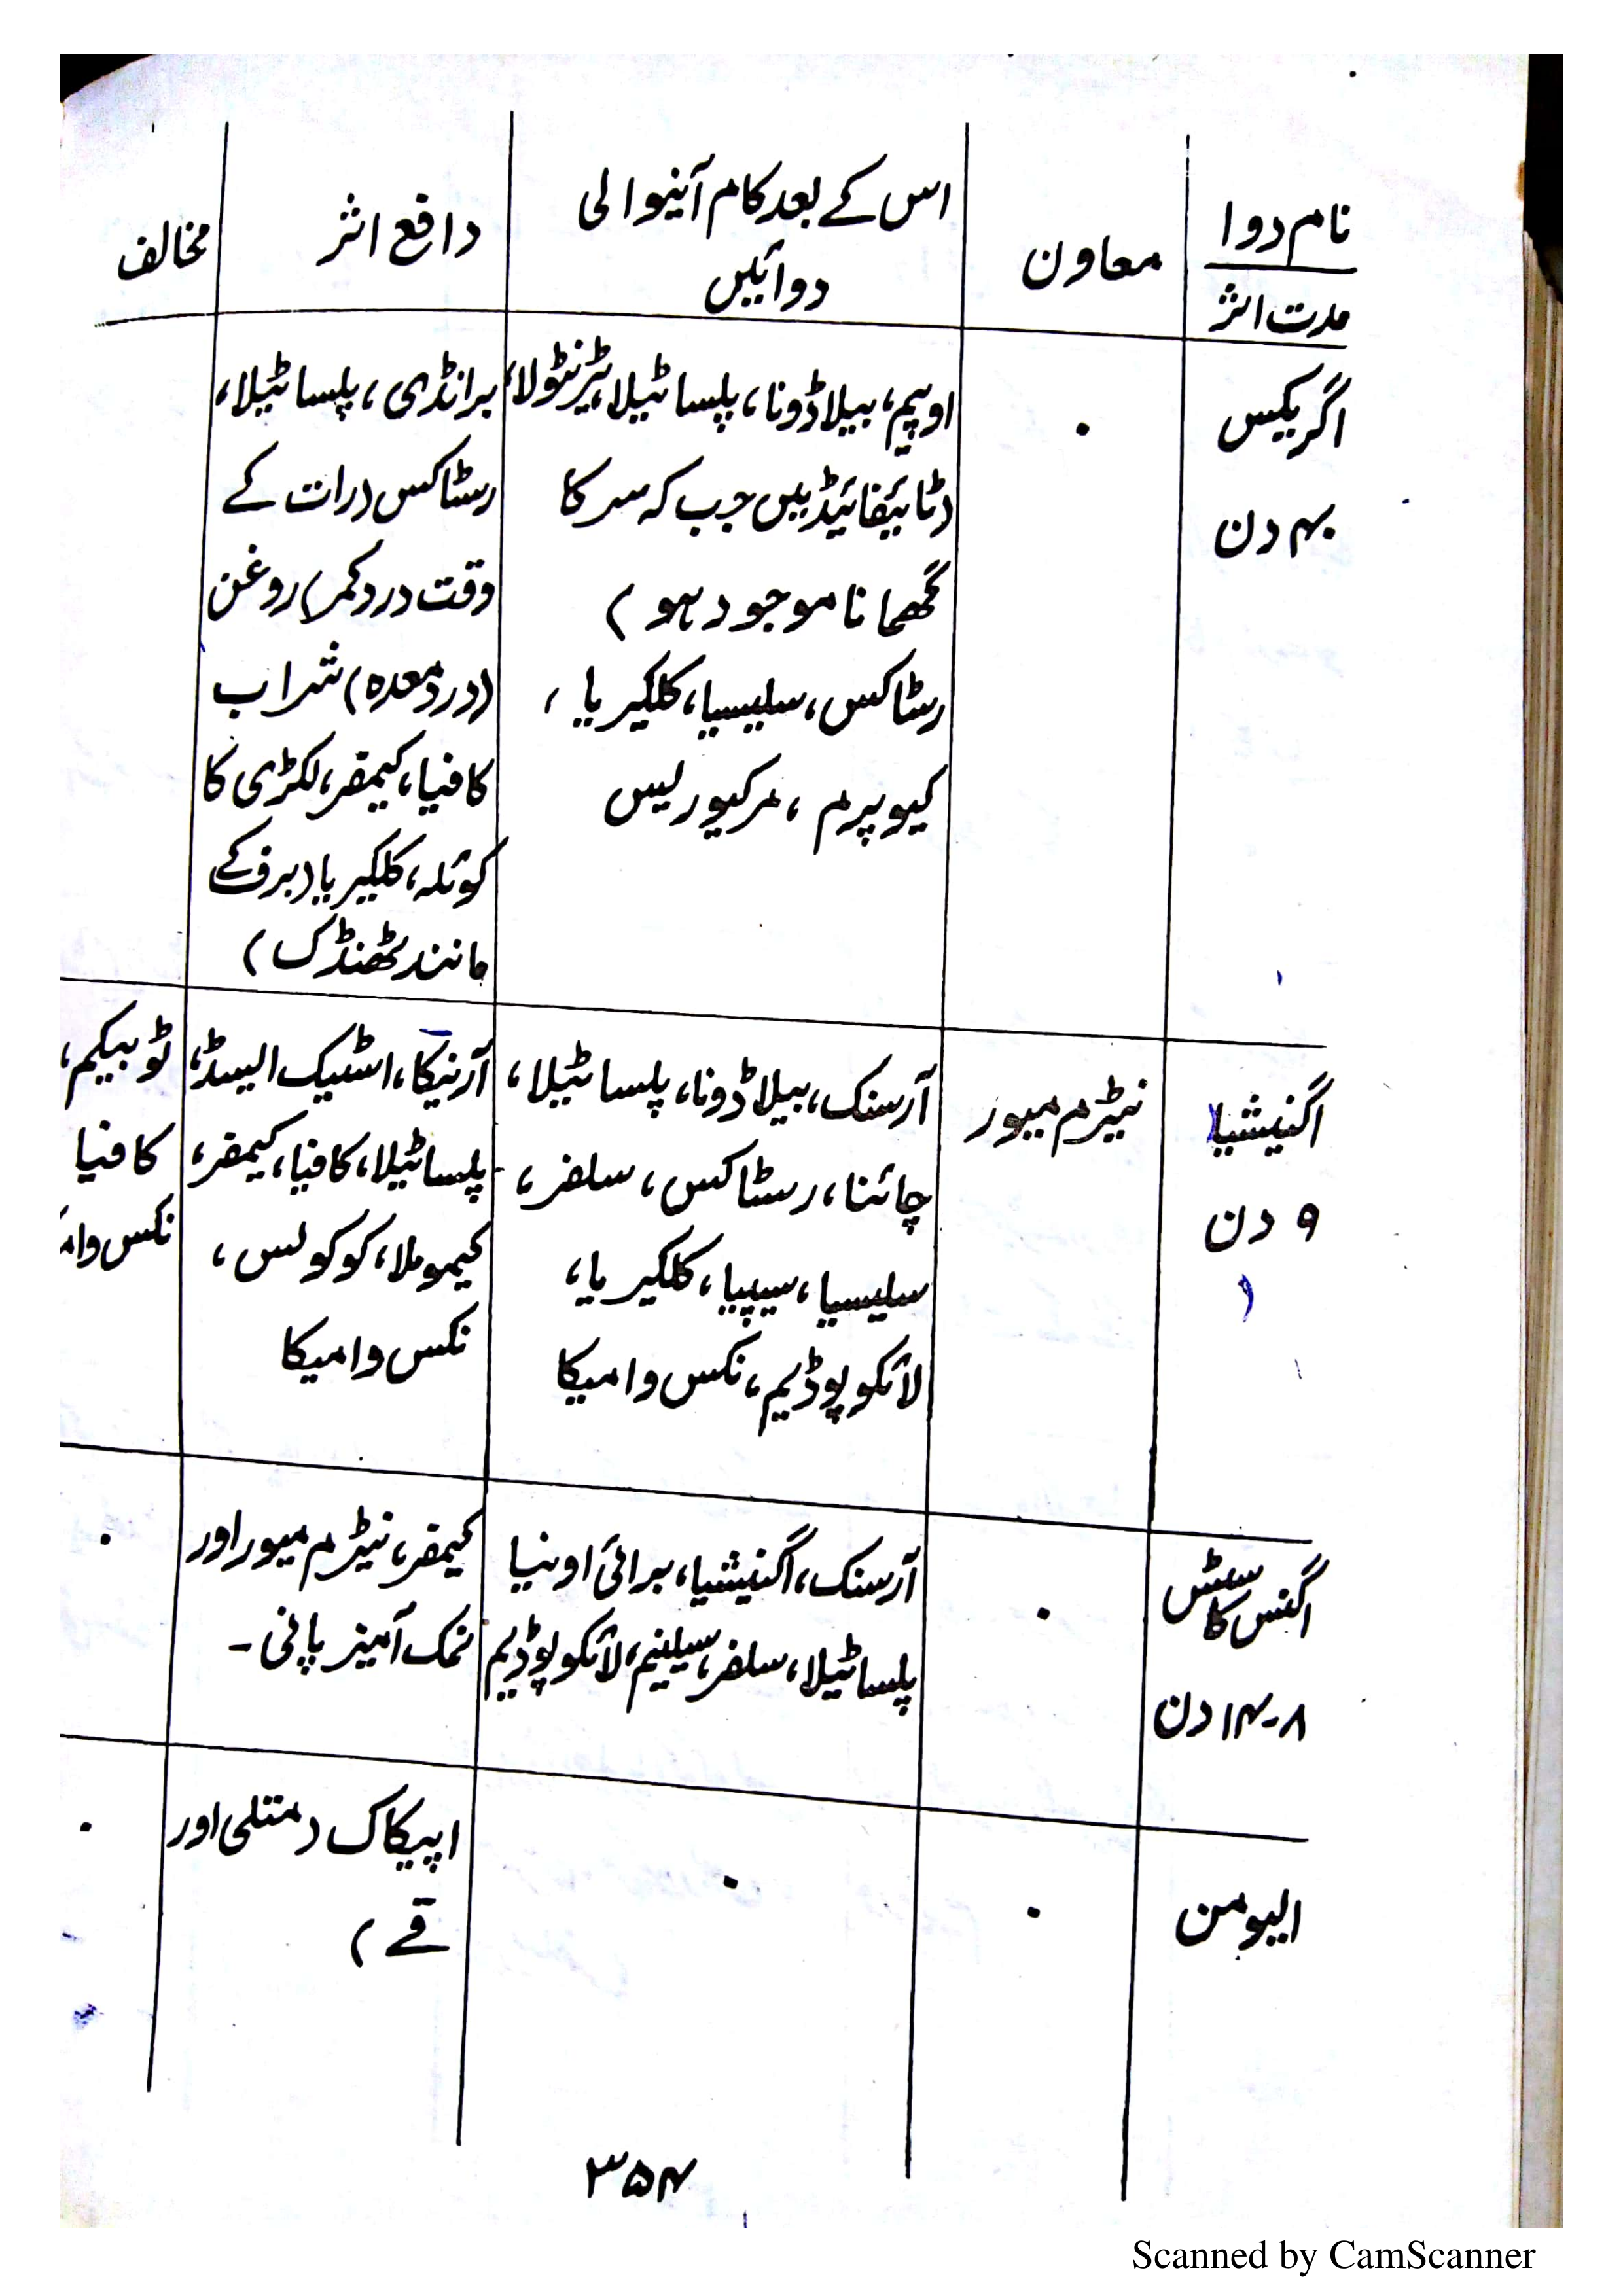 نام دوا
مدت اثر
معاون
اس کے بعد کام آنیوالی
دوائیں
دافع اثر
مخالف
اگریکس
۴۰ دن
۰
اوپیم، بیلاڈونا، پلساٹیلا، ٹرنٹولا،
(ٹائیفائیڈ میں جب کہ سر کا
گھمانا موجود ہو)
رسٹاکس، سلیسیا، کلکیریا،
کیوپرم، مرکیورلیس
برانڈی، پلساٹیلا،
رسٹاکس (رات کے
وقت درد کمر) روغن
(درد معدہ) شراب
کافیا، کیمفر، لکڑی کا
کوئلہ، کلکیریا (برف کے
مانند ٹھنڈک)
اگنیشیا
۹ دن
نیٹرم میور
آرسنک، بیلاڈونا، پلساٹیلا،
چائنا، رسٹاکس، سلفر،
سلیسیا، سیپیا، کلکیریا،
لائکوپوڈیم، نکس وامیکا
آرنیکا، اسٹیک ایسڈ،
پلساٹیلا، کافیا، کیمفر،
کیموملا، کوکولس،
نکس وامیکا
ٹوبیکم،
کافیا
نکس وام
اگنس کاسٹس
۸-۱۴ دن
۰
آرسنک، اگنیشیا، برائی اونیا
پلساٹیلا، سلفر، سیلینیم، لائکوپوڈیم
کیمفر، نیٹرم میور اور
نمک آمیز پانی۔
۰
الیومن
۰
۰
اپیکاک (متلی اور
قے)
۰
۳۵۴
Scanned by CamScanner